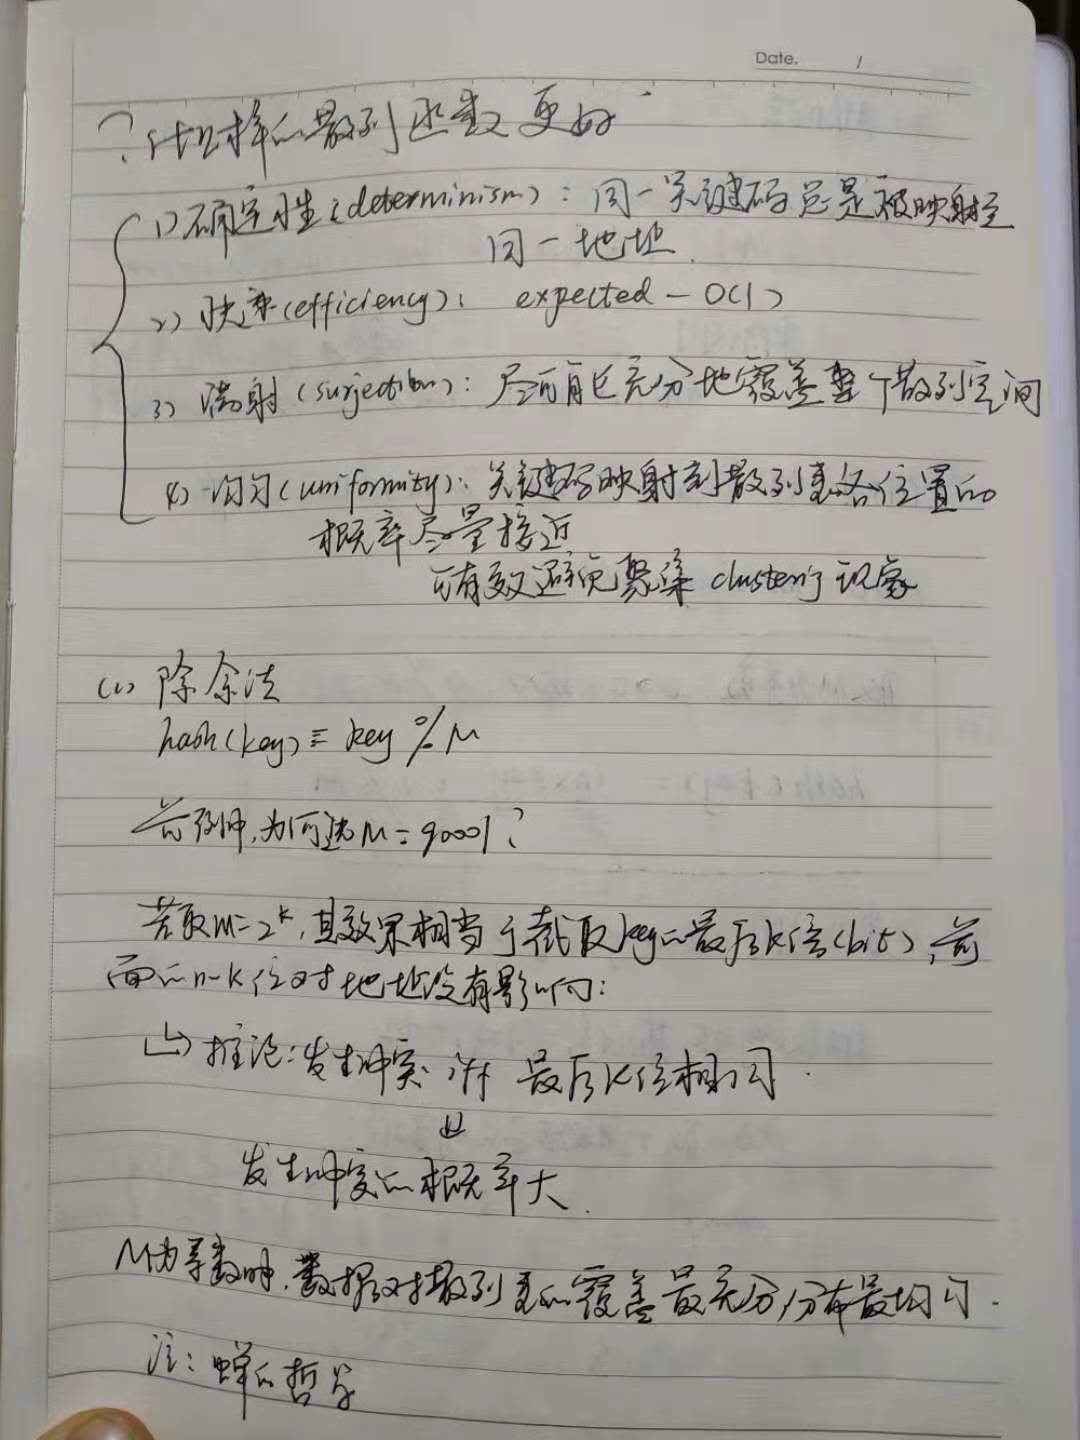 Date. /
? 什么样的散列函数更好
1) 确定性 (determinism): 同一关键码总是被映射至
同一地址.
2) 快速 (efficiency): expected - O(1)
3) 满射 (surjection): 尽可能充分地覆盖整个散列空间
4) 均匀 (uniformity): 关键码映射到散列表各位置的
概率尽量接近
可有效避免聚集 clustering 现象
(1) 除余法
hash(key) = key % M
前例中,为何选 M = 90001?
若取M=2^k,其效果相当于截取key的最后k位(bit),前
面的n-k位对地址没有影响:
↳ 推论:发生冲突 iff 最后k位相同.
⇓
发生冲突的概率大.
M为素数时,数据对散列表的覆盖最充分,分布最均匀.
注:蝉的哲学